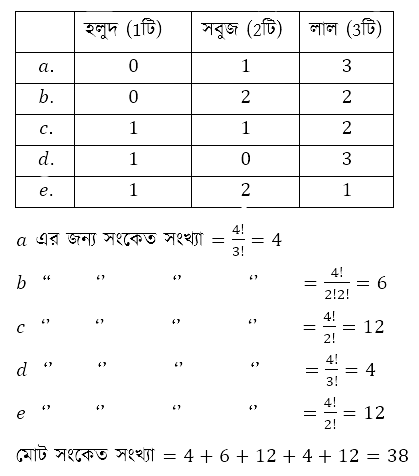 হলুদ (1টি) সবুজ (2টি) লাল (3টি)
a. 0 1 3
b. 0 2 2
c. 1 1 2
d. 1 0 3
e. 1 2 1
a এর জন্য সংকেত সংখ্যা = 4!/3! = 4
b “ ‘’ ‘’ ‘’ = 4!/2!2! = 6
c ‘’ ‘’ ‘’ ‘’ = 4!/2! = 12
d ‘’ ‘’ ‘’ ‘’ = 4!/3! = 4
e ‘’ ‘’ ‘’ ‘’ = 4!/2! = 12
মোট সংকেত সংখ্যা = 4 + 6 + 12 + 4 + 12 = 38